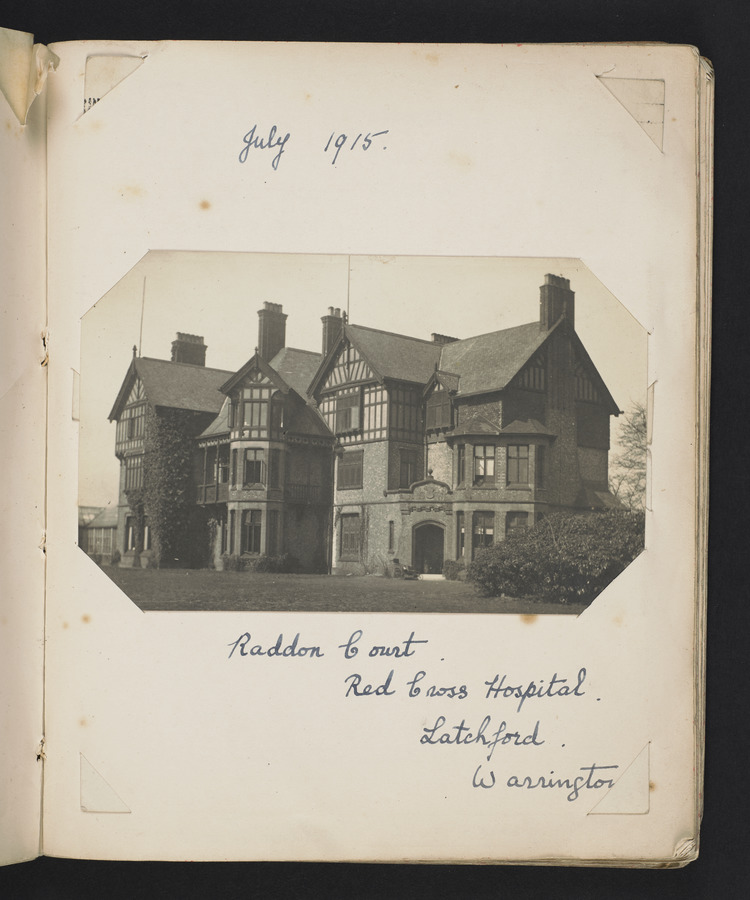 July 1915.
Raddon Court.
Red Cross Hospital.
Latchford.
Warrington